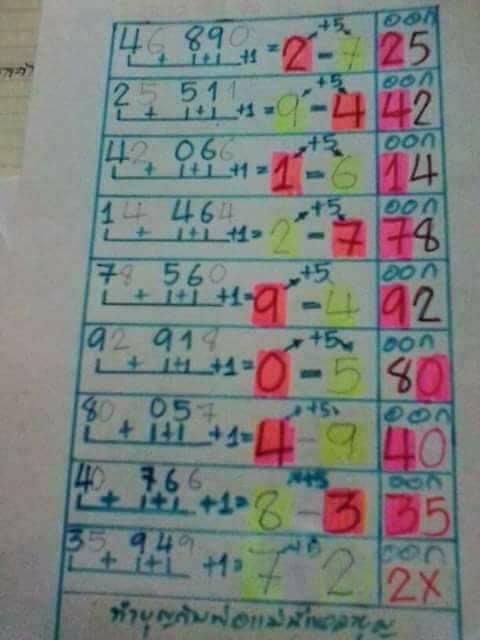 +5 ออก
46 890
+ + +1 = 2 - 7 25
+5 ออก
25 511
+ + +1 = 9 - 4 42
+5 ออก
42 066
+ + +1 = 1 - 6 14
+5 ออก
14 464
+ + +1 = 2 - 7 78
+5 ออก
78 560
+ + +1 = 9 - 4 92
+5 ออก
92 918
+ + +1 = 0 - 5 80
+5 ออก
80 057
+ + +1 = 4 - 9 40
+5 ออก
40 766
+ + +1 = 8 - 3 35
ออก
35 949
+ + +1 = 7 2 2X
ทำบุญกับพ่อแม่